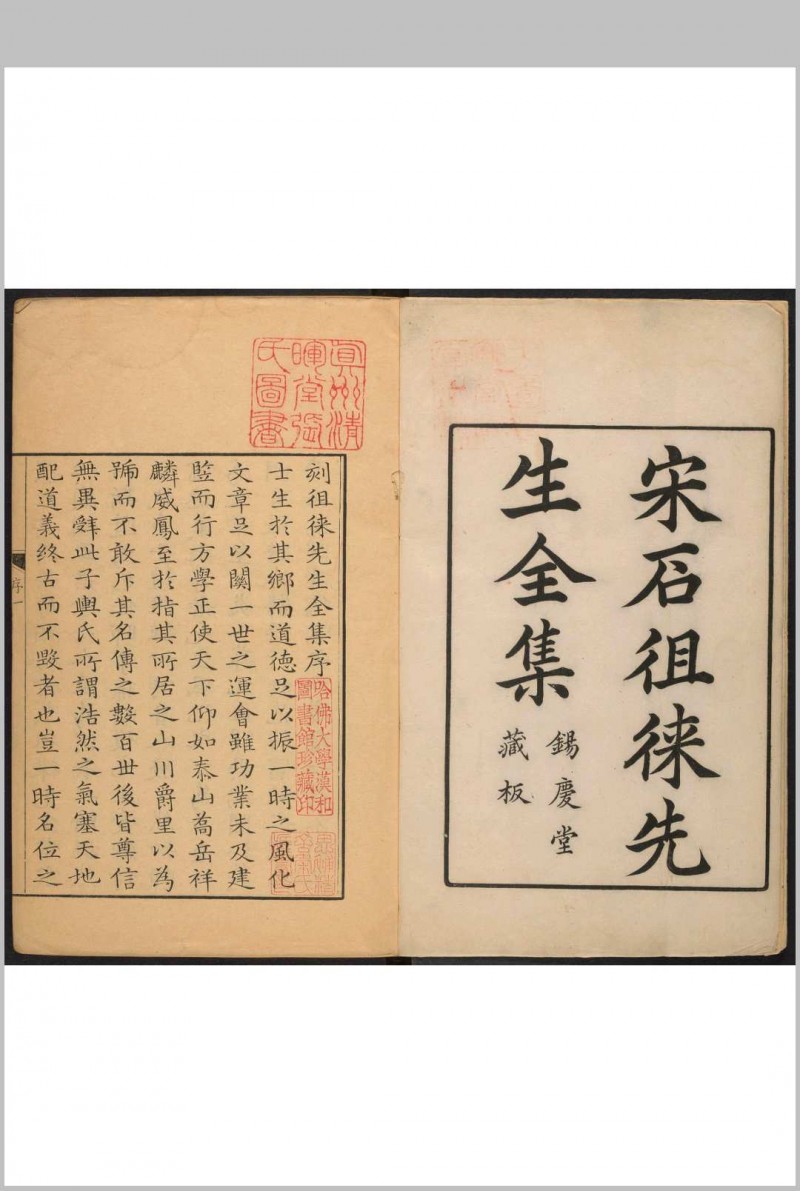 宋石徂徠先
生全集
錫慶堂
藏板
刻徂徠先生全集序
士生於其鄉而道德足以振一時之風化
文章足以闗一世之運會雖功業未及建
竪而行方學正使天下仰如泰山喬岳祥
麟威鳳至於指其所居之山川爵里以為
號而不敢斥其名傳之數百世後皆尊信
無異辤此子輿氏所謂浩然之氣塞天地
配道義終古而不毀者也豈一時名位之
序一
真州清
暉堂張
氏圖書
哈佛大學漢和
圖書館珍藏印